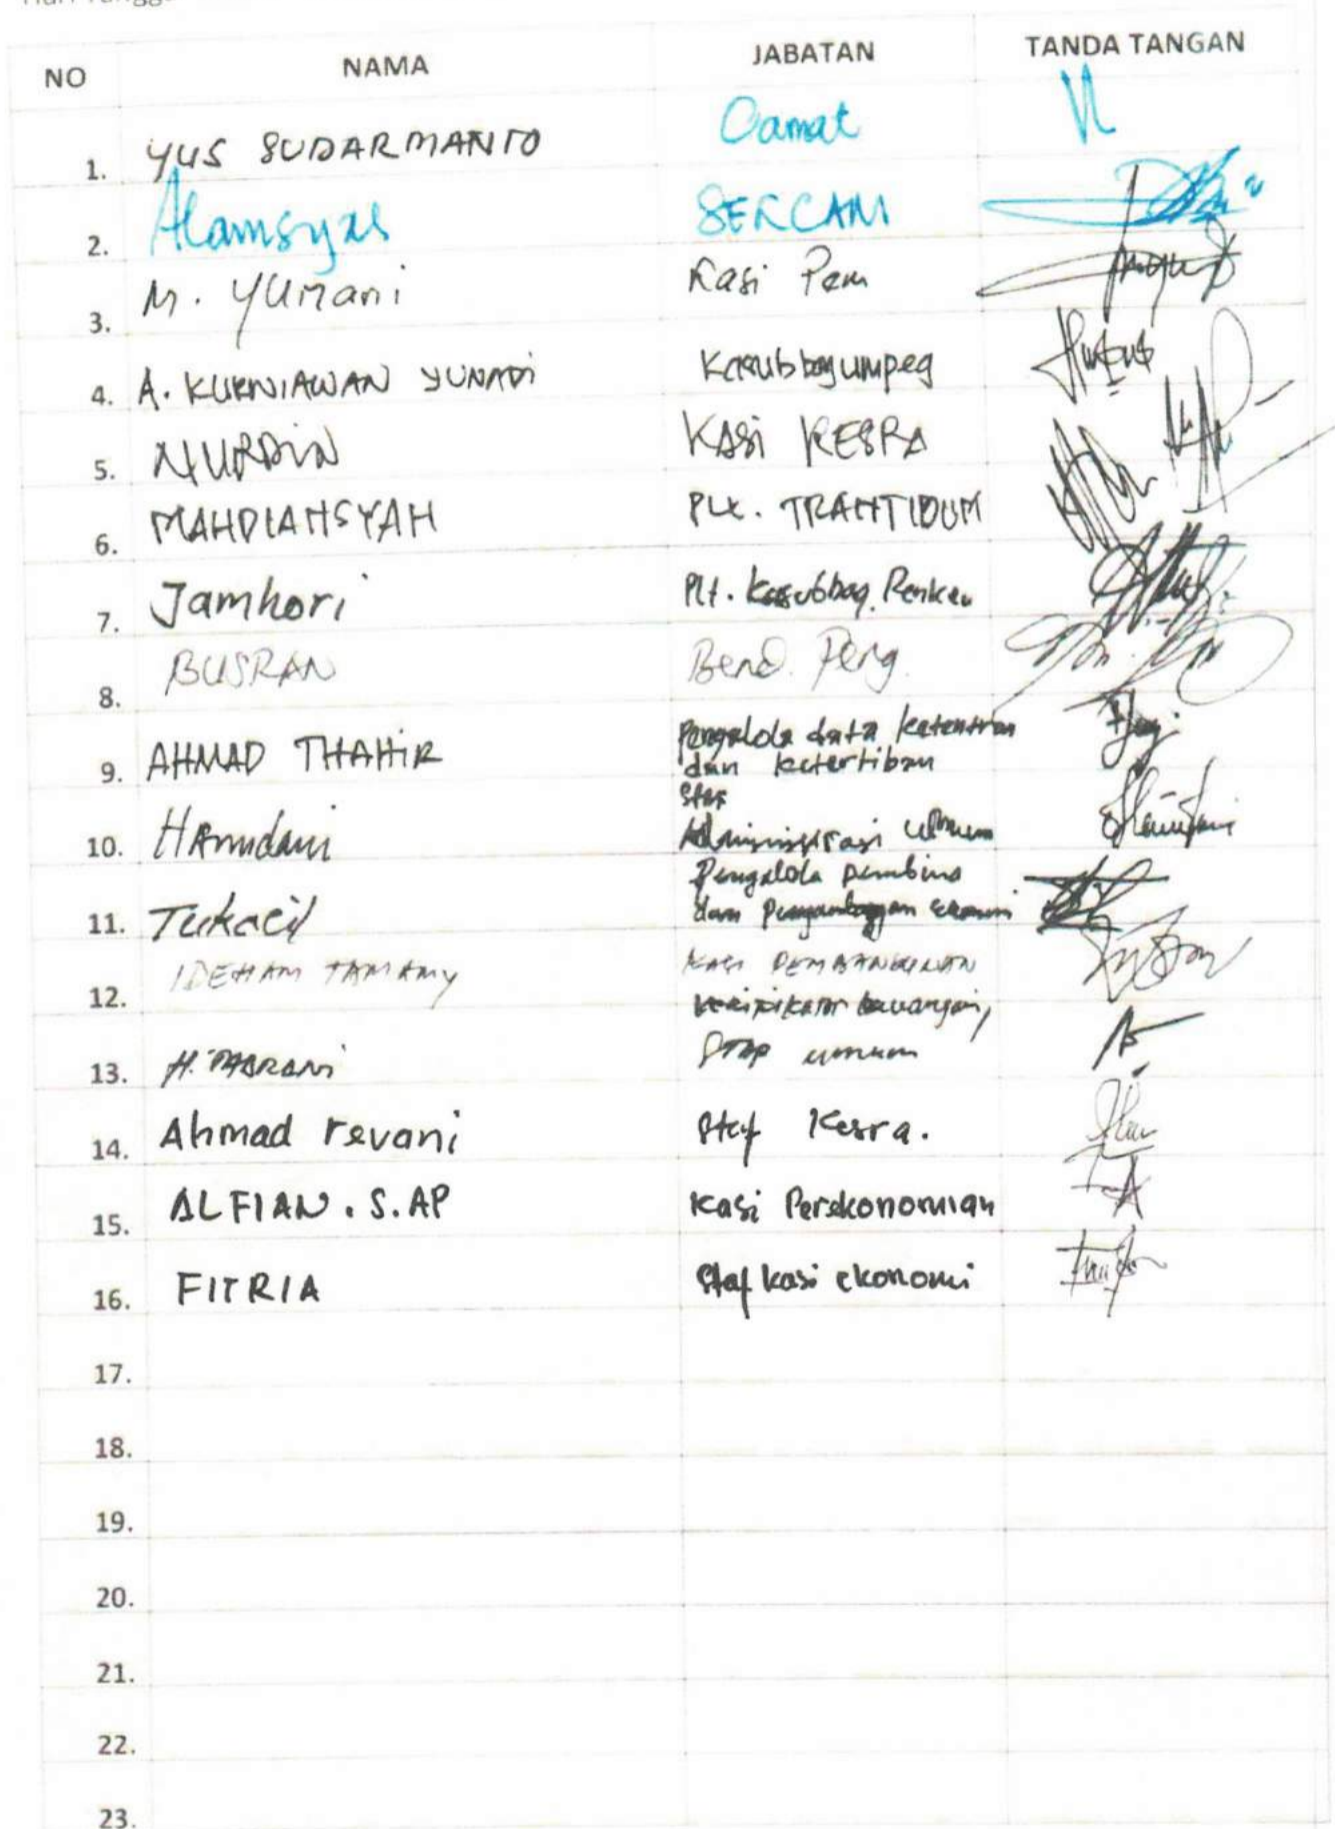 NO NAMA JABATAN TANDA TANGAN
1. YUS SUDARMANTO Camat
2. Alamsyah SEKCAM
3. M. YUMani Kasi Pem
4. A. KURNIAWAN YUNADI Kasubbagumpeg
5. NURDIN KASI KESRA
6. MAHDIANSYAH PLt. TRANTIBUM
7. Jamhori Plt. Kasubbag. Renkeu
8. BUSRAN Bend. Peng.
9. AHMAD THAHIR Pengelola data ketentran
dan ketertiban
10. HAmdani Staf
Administrasi umum
11. Pengelola pembina
dan
12. IDEHAM TAMAMY KASI PEMBANGUNAN
13. H. Veripikator keuangan,
STAP umum
14. Ahmad revani Staf Kesra.
15. ALFIAN. S. AP Kasi Perekonomian
16. FITRIA Staf kasi ekonomi
17.
18.
19.
20.
21.
22.
23.